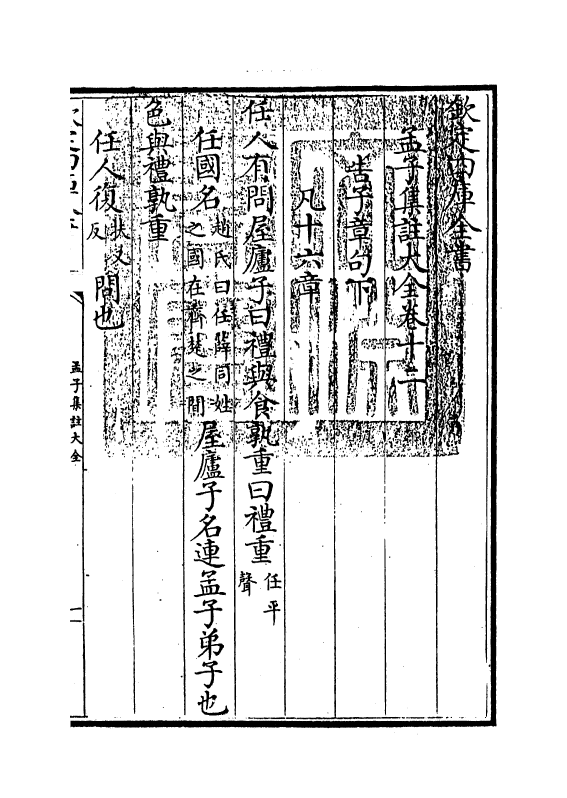 欽定四庫全書
孟子集註大全卷十二
告子章句下
凡十六章
任人有問屋廬子曰禮與食孰重曰禮重任平聲
任國名趙氏曰任薛同姓之國在齊楚之間屋廬子名連孟子弟子也
色與禮孰重
任人復扶又反問也
孟子集註大全
一